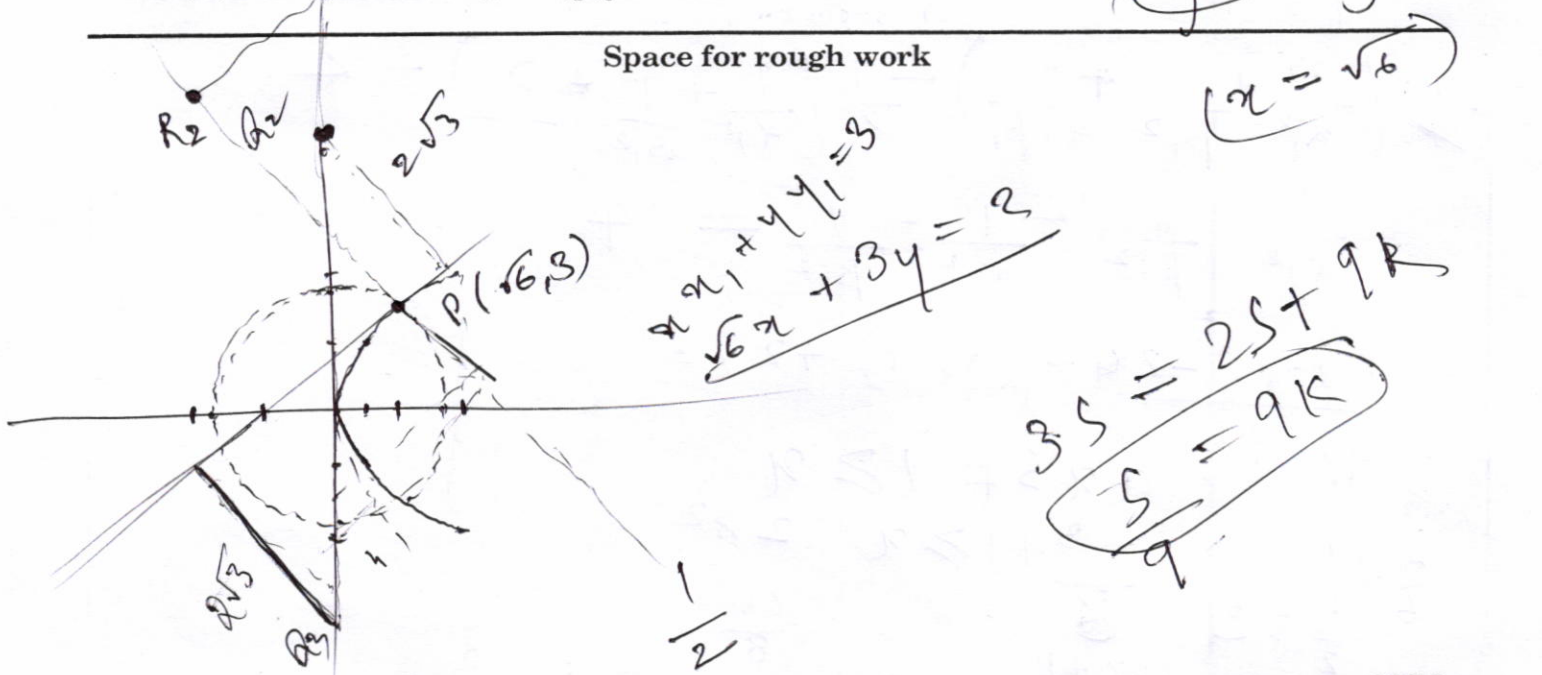 Space for rough work
(x = √6)
R2
Q2
2√3
P(√6,3)
x x₁ + y y₁ = 3
√6 x + 3y = 2
3S = 2S + 9K
S = 9K
9
2√3
Q3
1
2